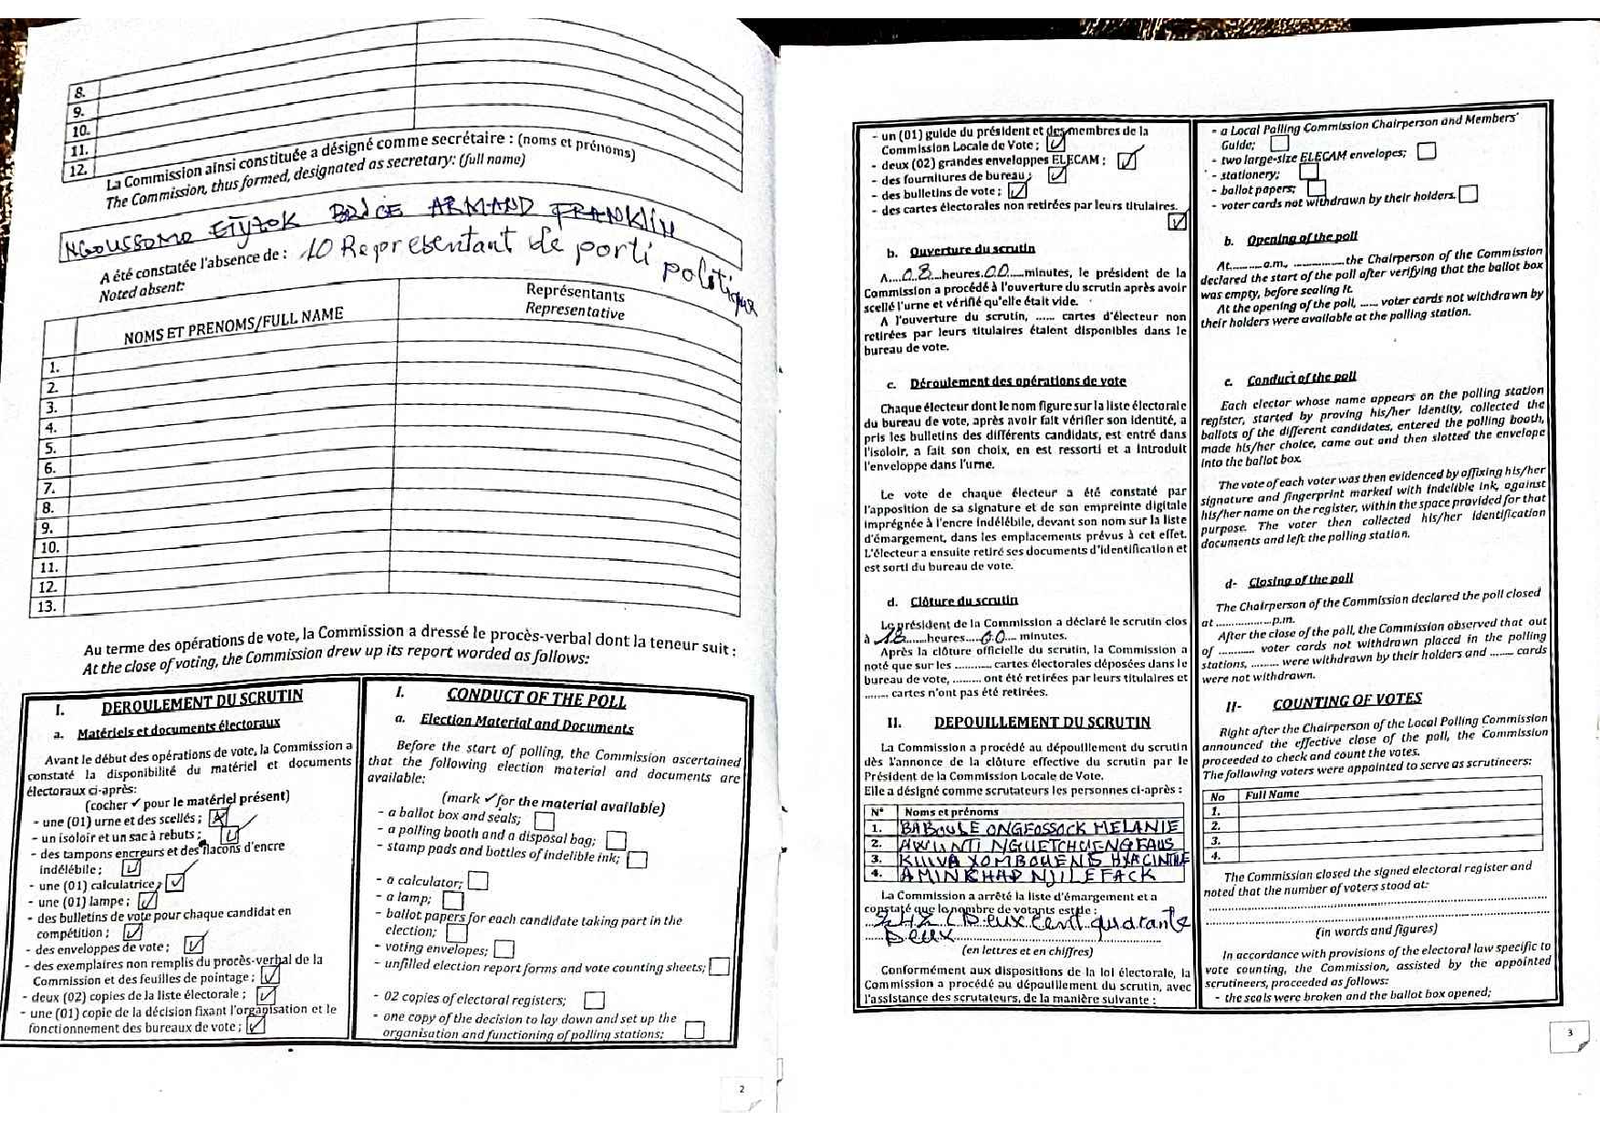 8.
9.
10.
11.
12.
La Commission ainsi constituée a désigné comme secrétaire : (noms et prénoms)
The Commission, thus formed, designated as secretary: (full name)
NGOUSSOMO BRICE ARMAND FRANKLIN
A été constatée l'absence de : 10 Representant de parti politique
Noted absent:
NOMS ET PRENOMS/FULL NAME
Représentants
Representative
1.
2.
3.
4.
5.
6.
7.
8.
9.
10.
11.
12.
13.
Au terme des opérations de vote, la Commission a dressé le procès-verbal dont la teneur suit :
At the close of voting, the Commission drew up its report worded as follows:
I. DEROULEMENT DU SCRUTIN
a. Matériels et documents électoraux
Avant le début des opérations de vote, la Commission a
constaté la disponibilité du matériel et documents
électoraux ci-après:
(cocher ✓ pour le matériel présent)
- une (01) urne et des scellés ;
- un isoloir et un sac à rebuts ;
- des tampons encreurs et des flacons d'encre
indélébile ;
- une (01) calculatrice ;
- une (01) lampe ;
- des bulletins de vote pour chaque candidat en
compétition ;
- des enveloppes de vote ;
- des exemplaires non remplis du procès-verbal de la
Commission et des feuilles de pointage ;
- deux (02) copies de la liste électorale ;
- une (01) copie de la décision fixant l'organisation et le
fonctionnement des bureaux de vote ;
I. CONDUCT OF THE POLL
a. Election Material and Documents
Before the start of polling, the Commission ascertained
that the following election material and documents are
available:
(mark ✓ for the material available)
- a ballot box and seals;
- a polling booth and a disposal bag;
- stamp pads and bottles of indelible ink;
- a calculator;
- a lamp;
- ballot papers for each candidate taking part in the
election;
- voting envelopes;
- unfilled election report forms and vote counting sheets;
- 02 copies of electoral registers;
- one copy of the decision to lay down and set up the
organisation and functioning of polling stations;
2
- un (01) guide du président et des membres de la
Commission Locale de Vote ;
- deux (02) grandes enveloppes ELECAM ;
- des fournitures de bureau ;
- des bulletins de vote ;
- des cartes électorales non retirées par leurs titulaires.
b. Ouverture du scrutin
A....08...heures.00....minutes, le président de la
Commission a procédé à l'ouverture du scrutin après avoir
scellé l'urne et vérifié qu'elle était vide.
A l'ouverture du scrutin, ...... cartes d'électeur non
retirées par leurs titulaires étaient disponibles dans le
bureau de vote.
c. Déroulement des opérations de vote
Chaque électeur dont le nom figure sur la liste électorale
du bureau de vote, après avoir fait vérifier son identité, a
pris les bulletins des différents candidats, est entré dans
l'isoloir, a fait son choix, en est ressorti et a introduit
l'enveloppe dans l'urne.
Le vote de chaque électeur a été constaté par
l'apposition de sa signature et de son empreinte digitale
imprégnée à l'encre indélébile, devant son nom sur la liste
d'émargement, dans les emplacements prévus à cet effet.
L'électeur a ensuite retiré ses documents d'identification et
est sorti du bureau de vote.
d. Clôture du scrutin
Le président de la Commission a déclaré le scrutin clos
à .18......heures....00.... minutes.
Après la clôture officielle du scrutin, la Commission a
noté que sur les ........... cartes électorales déposées dans le
bureau de vote, ......... ont été retirées par leurs titulaires et
....... cartes n'ont pas été retirées.
II. DEPOUILLEMENT DU SCRUTIN
La Commission a procédé au dépouillement du scrutin
dès l'annonce de la clôture effective du scrutin par le
Président de la Commission Locale de Vote.
Elle a désigné comme scrutateurs les personnes ci-après :
N° Noms et prénoms
1. BABOULE ONGFOSSOCK MELANIE
2. AWUNTI
3. HYACINTHE
4. AMINKHAD NJILEFACK
La Commission a arrêté la liste d'émargement et a
constaté que le nombre de votants est de :
242 (Deux cent quarante
Deux
(en lettres et en chiffres)
Conformément aux dispositions de la loi électorale, la
Commission a procédé au dépouillement du scrutin, avec
l'assistance des scrutateurs, de la manière suivante :
- a Local Polling Commission Chairperson and Members'
Guide;
- two large-size ELECAM envelopes;
- stationery;
- ballot papers;
- voter cards not withdrawn by their holders.
b. Opening of the poll
At..........a.m, ................the Chairperson of the Commission
declared the start of the poll after verifying that the ballot box
was empty, before sealing it.
At the opening of the poll, ...... voter cards not withdrawn by
their holders were available at the polling station.
c. Conduct of the poll
Each elector whose name appears on the polling station
register, started by proving his/her identity, collected the
ballots of the different candidates, entered the polling booth,
made his/her choice, came out and then slotted the envelope
into the ballot box
The vote of each voter was then evidenced by affixing his/her
signature and fingerprint marked with indelible ink, against
his/her name on the register, within the space provided for that
purpose. The voter then collected his/her identification
documents and left the polling station.
d- Closing of the poll
The Chairperson of the Commission declared the poll closed
at ..................p.m.
After the close of the poll, the Commission observed that out
of .......... voter cards not withdrawn placed in the polling
stations, ........ were withdrawn by their holders and ....... cards
were not withdrawn.
II- COUNTING OF VOTES
Right after the Chairperson of the Local Polling Commission
announced the effective close of the poll, the Commission
proceeded to check and count the votes.
The following voters were appointed to serve as scrutineers:
No Full Name
1.
2.
3.
4.
The Commission closed the signed electoral register and
noted that the number of voters stood at:
(in words and figures)
In accordance with provisions of the electoral law specific to
vote counting, the Commission, assisted by the appointed
scrutineers, proceeded as follows:
- the seals were broken and the ballot box opened;
3